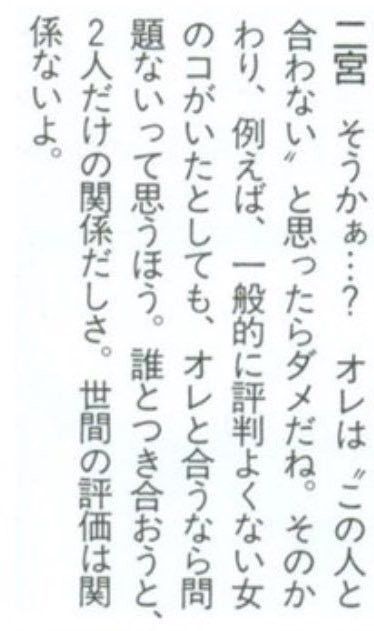 二宮　そうかぁ…？　オレは〝この人と
合わない〟と思ったらダメだね。そのか
わり、例えば、一般的に評判よくない女
のコがいたとしても、オレと合うなら問
題ないって思うほう。誰とつき合おうと、
2人だけの関係だしさ。世間の評価は関
係ないよ。